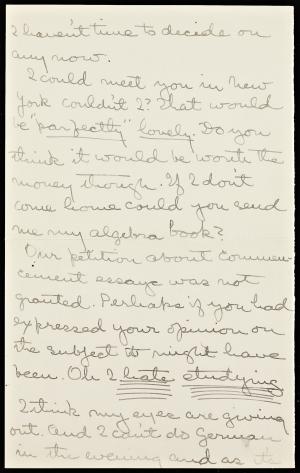 I haven't time to decide on
any now.
I could meet you in New
York couldn't I? That would
be "parfectly" lovely. Do you
think it would be worth the
money though. If I don't
come home could you send
me my algebra book?
Our petition about commen-
cement essays was not
granted. Perhaps if you had
expressed your opinion on
the subject it might have
been. Oh I hate studying
I think my eyes are giving
out. And I can't do German
in the evening and as the